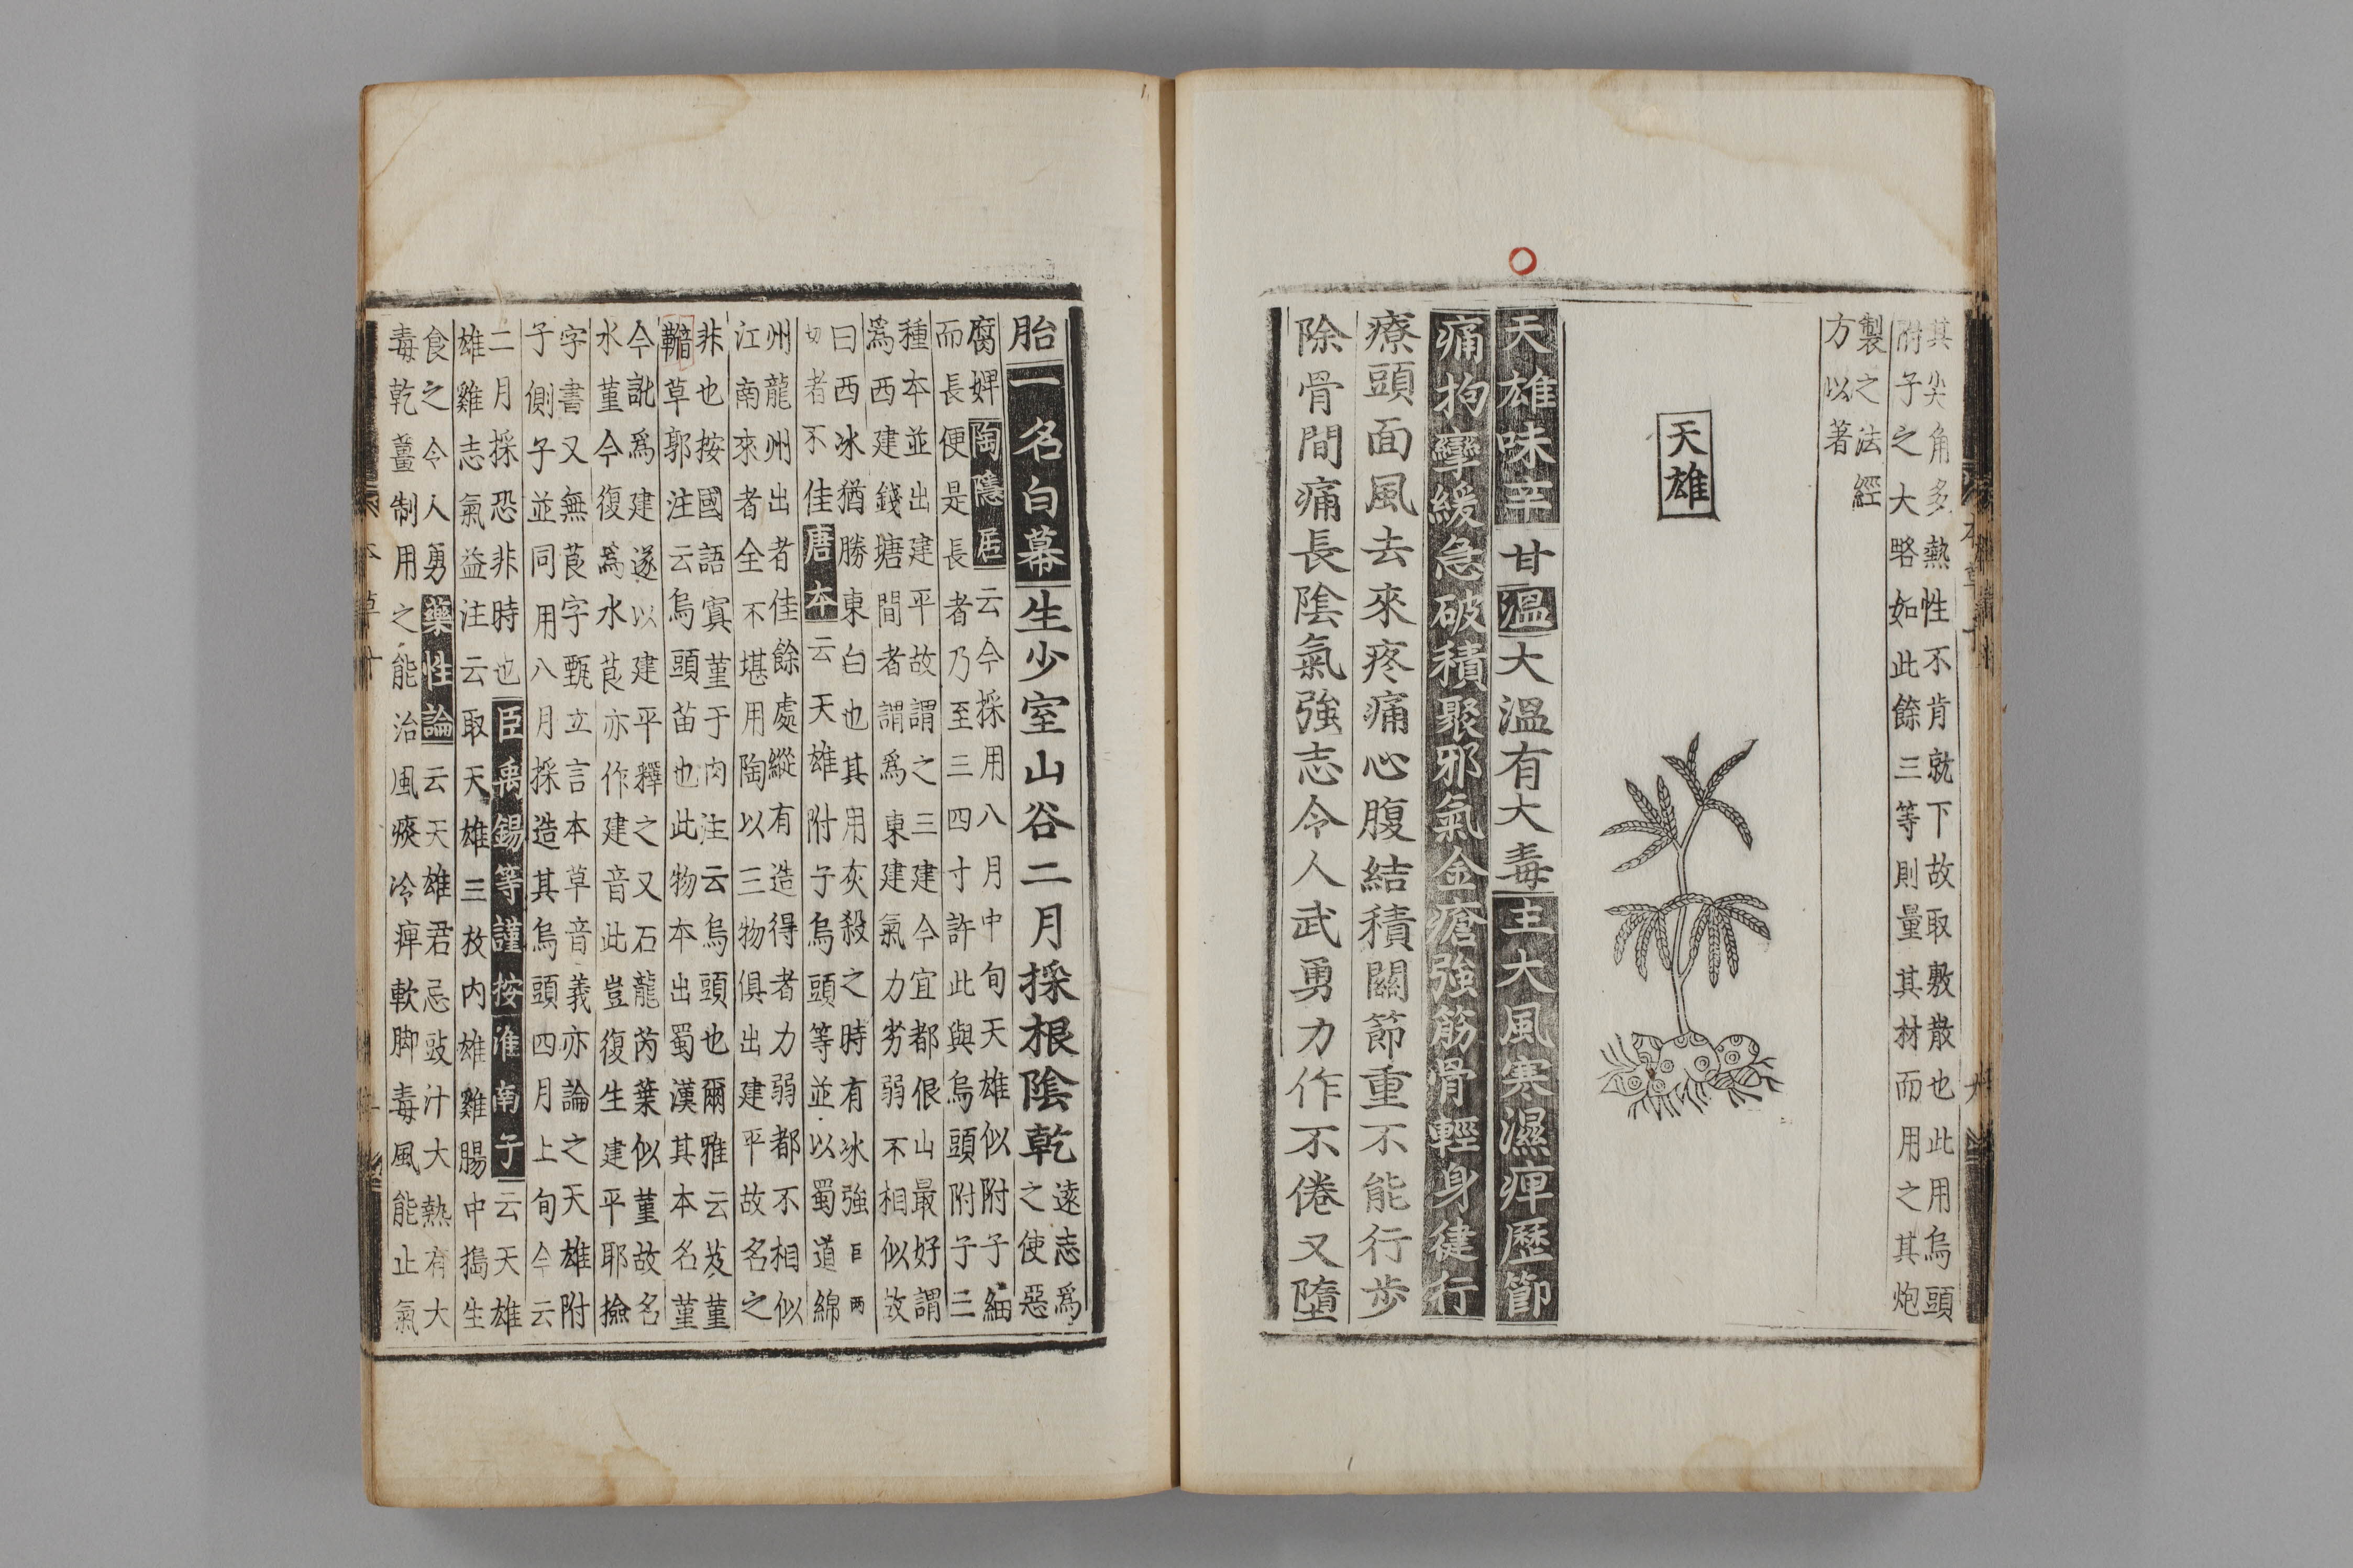 其尖角多熱性不肯就下故取敷散也此用烏頭
附子之大略如此餘三等則量其材而用之其炮
製之法經
方以著
天雄
天雄味辛甘溫大溫有大毒主大風寒濕痺歷節
痛拘攣緩急破積聚邪氣金瘡強筋骨輕身健行
療頭面風去來疼痛心腹結積關節重不能行步
除骨間痛長陰氣強志令人武勇力作不倦又墮
胎一名白幕生少室山谷二月採根陰乾
遠志爲
之使惡
腐婢陶隱居云今採用八月中旬天雄似附子細
而長便是長者乃至三四寸許此與烏頭附子三
種本並出建平故謂之三建今宜都佷山最好謂
爲西建錢塘間者謂爲東建氣力劣弱不相似故
曰西冰猶勝東白也其用灰殺之時有冰強巨兩
如者不佳唐本云天雄附子烏頭等並以蜀道綿
州龍州出者佳餘處縱有造得者力弱都不相似
江南來者全不堪用陶以三物俱出建平故名之
非也按國語寘菫于肉注云烏頭也爾雅云芨菫
草郭注云烏頭苗也此物本出蜀漢其本名菫
今訛爲建遂以建平釋之又石龍芮葉似菫故名
水菫今復爲水茛亦作建音此豈復生建平耶撿
字書又無茛字甄立言本草音義亦論之天雄附
子側子並同用八月採造其烏頭四月上旬今云
二月採恐非時也臣禹錫等謹按淮南子云天雄
雄雞志氣益注云取天雄三枚内雄雞腸中搗生
食之令人勇藥性論云天雄君忌豉汁大熱有大
毒乾薑制用之能治風痰冷痺軟脚毒風能止氣